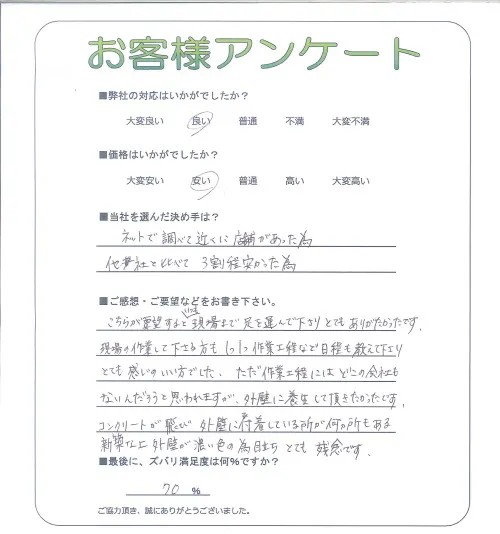 お客様アンケート
■弊社の対応はいかがでしたか？
大変良い　良い　普通　不満　大変不満
■価格はいかがでしたか？
大変安い　安い　普通　高い　大変高い
■当社を選んだ決め手は？
ネットで調べて近くに店舗があった為
他業社と比べて 3割程安かった為
■ご感想・ご要望などをお書き下さい。
いつも
こちらが要望すると現場まで足を運んで下さりとてもありがたかったです。
現場の作業して下さる方も1つ1つ作業工程など日程も教えて下さり
とても感じのいい方でした。ただ作業工程にはどこの会社も
ないんだろうと思われますが、外壁に養生して頂きたかったです。
コンクリートが飛び外壁に付着している所が何カ所もある
新築な上外壁が濃い色の為目立ちとても残念です。
■最後に、ズバリ満足度は何%ですか？
70 %
ご協力頂き、誠にありがとうございました。